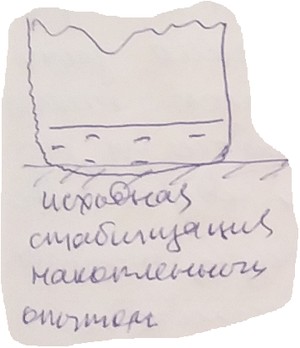 исходная
стабилизация
накопленного
опытом